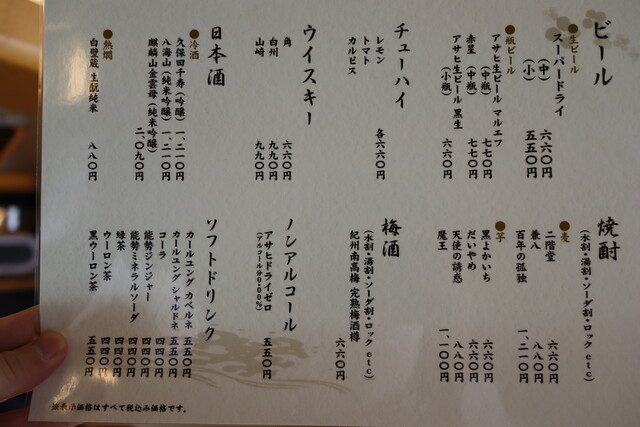 ビール
●生ビール
スーパードライ
（中） 六六〇円
（小） 五五〇円
●瓶ビール
アサヒ生ビール マルエフ
（中瓶） 七七〇円
赤星（中瓶） 七七〇円
アサヒ生ビール 黒生
（小瓶） 六六〇円
チューハイ
レモン
トマト
カルピス
各六六〇円
ウイスキー
角 六六〇円
白州 九九〇円
山崎 九九〇円
日本酒
●冷酒
久保田千寿（吟醸） 一、二一〇円
八海山（純米吟醸） 一、二一〇円
麒麟山金雲母（純米吟醸）
二、〇九〇円
●熱燗
白壁蔵 生酛純米 八八〇円
焼酎
（水割・湯割・ソーダ割・ロック etc）
●麦
二階堂 六六〇円
兼八 八八〇円
百年の孤独 一、二一〇円
●芋
黒よかいち 六六〇円
だいやめ 六六〇円
天使の誘惑 八八〇円
魔王 一、一〇〇円
梅酒
（水割・湯割・ソーダ割・ロック etc）
紀州南高梅 完熟梅酒樽
六六〇円
ノンアルコール
アサヒドライゼロ 五五〇円
（アルコール分0.00%）
ソフトドリンク
カールユング カベルネ 五五〇円
カールユング シャルドネ 五五〇円
コーラ 四四〇円
能勢ジンジャー 四四〇円
能勢ミネラルソーダ 四四〇円
緑茶 四四〇円
ウーロン茶 四四〇円
黒ウーロン茶 五五〇円
※表示価格はすべて税込み価格です。